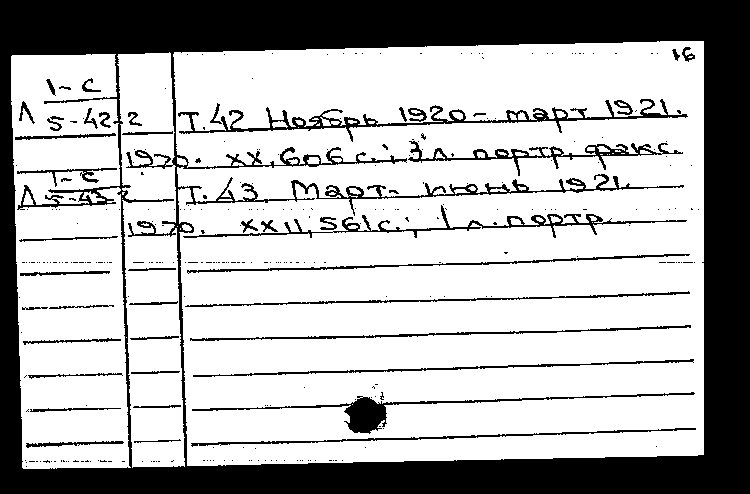 16
1-с
Л 5-42-2 Т.42 Ноябрь 1920 - март 1921.
1970. XX, 606 с.; 3 л. портр, факс.
1-с
Л 5-43-2 Т.43. Март - июнь 1921.
1970. XXII, 561 с.; 1 л. портр.